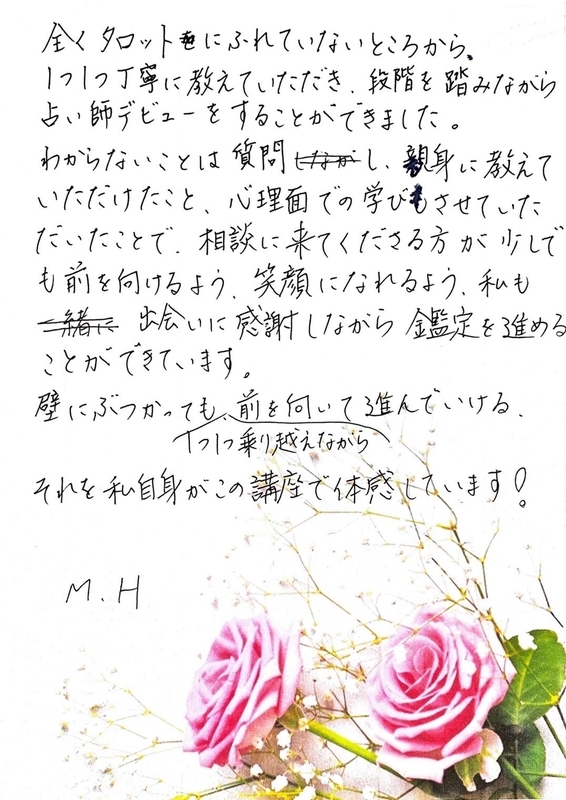 全くタロットにふれていないところから、
1つ1つ丁寧に教えていただき、段階を踏みながら
占い師デビューをすることができました。
わからないことは質問しながし、親身に教えて
いただけたこと、心理面での学びもさせていた
だいたことで、相談に来てくださる方が少しで
も前を向けるよう、笑顔になれるよう、私も
一緒に 出会いに感謝しながら鑑定を進める
ことができています。
壁にぶつかっても、前を向いて進んでいける、
1つ1つ乗り越えながら
それを私自身がこの講座で体感しています!
M.H